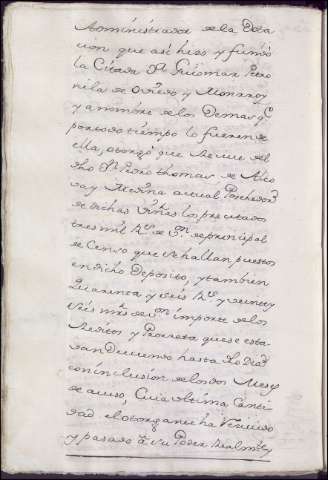 Administrador de la Dota
cion que asi hizo y fundó
la Citada Dª Guiomar Petro
nila de Oviedo y Monrroy
y a nombre de los Demas qe
por todo tiempo lo fueren de
ella, otorgó que recive del
dho Dn Pedro thomas de Alco
va y Medina actual Posehedor
de dichas Viñas los precitados
tres mil Rs de Vn de prinzipal
de Censo que se hallan puestos
en dicho Deposito, y tambien
quarenta y seis Rs y veinte y
seis mrs de von importe de los
Reditos y Prorrata que se esta
van Deviendo hasta
con inclusion de los dos Meses
de aviso, Cuia ultima Canti
dad el otorgante ha Recivido
y pasado á su Poder Realmte y